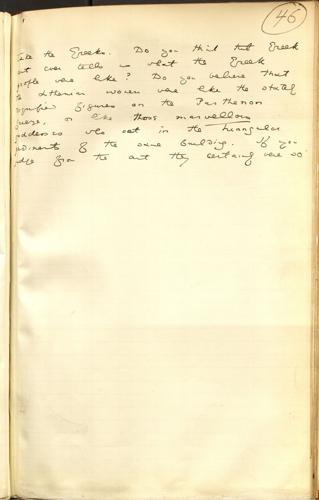 46
Take the Greeks. Do you think that Greek
art ever tells us what the Greek
people were like? Do you believe that
the Athenian women were like the stately
dignified figures on the Parthenon
frieze, or like those marvellous
goddesses who sat in the triangular
pediments of the same building. If you
judge from the art they certainly were so